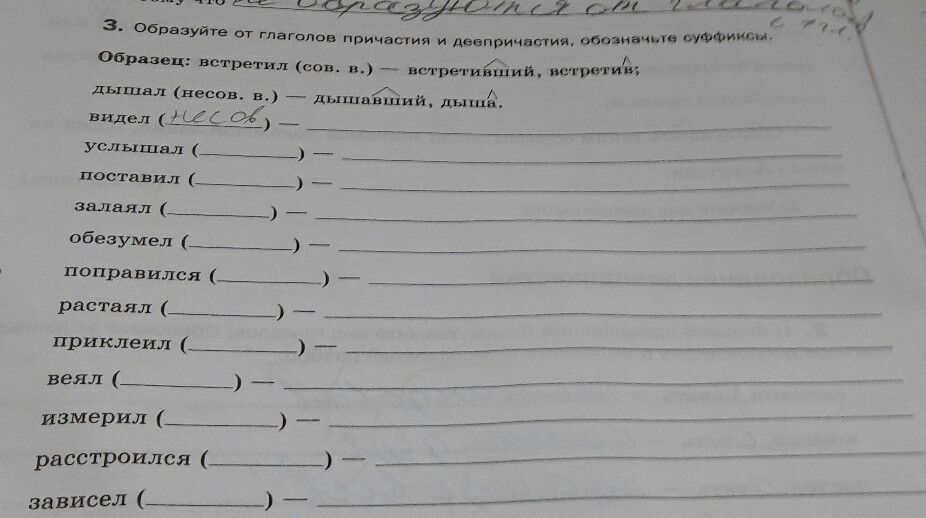 не образуются от глаголов
3. Образуйте от глаголов причастия и деепричастия, обозначьте суффиксы.
Образец: встретил (сов. в.) — встретивший, встретив;
дышал (несов. в.) — дышавший, дыша.
видел (несов) —
услышал (____) —
поставил (____) —
залаял (____) —
обезумел (____) —
поправился (____) —
растаял (____) —
приклеил (____) —
веял (____) —
измерил (____) —
расстроился (____) —
зависел (____) —